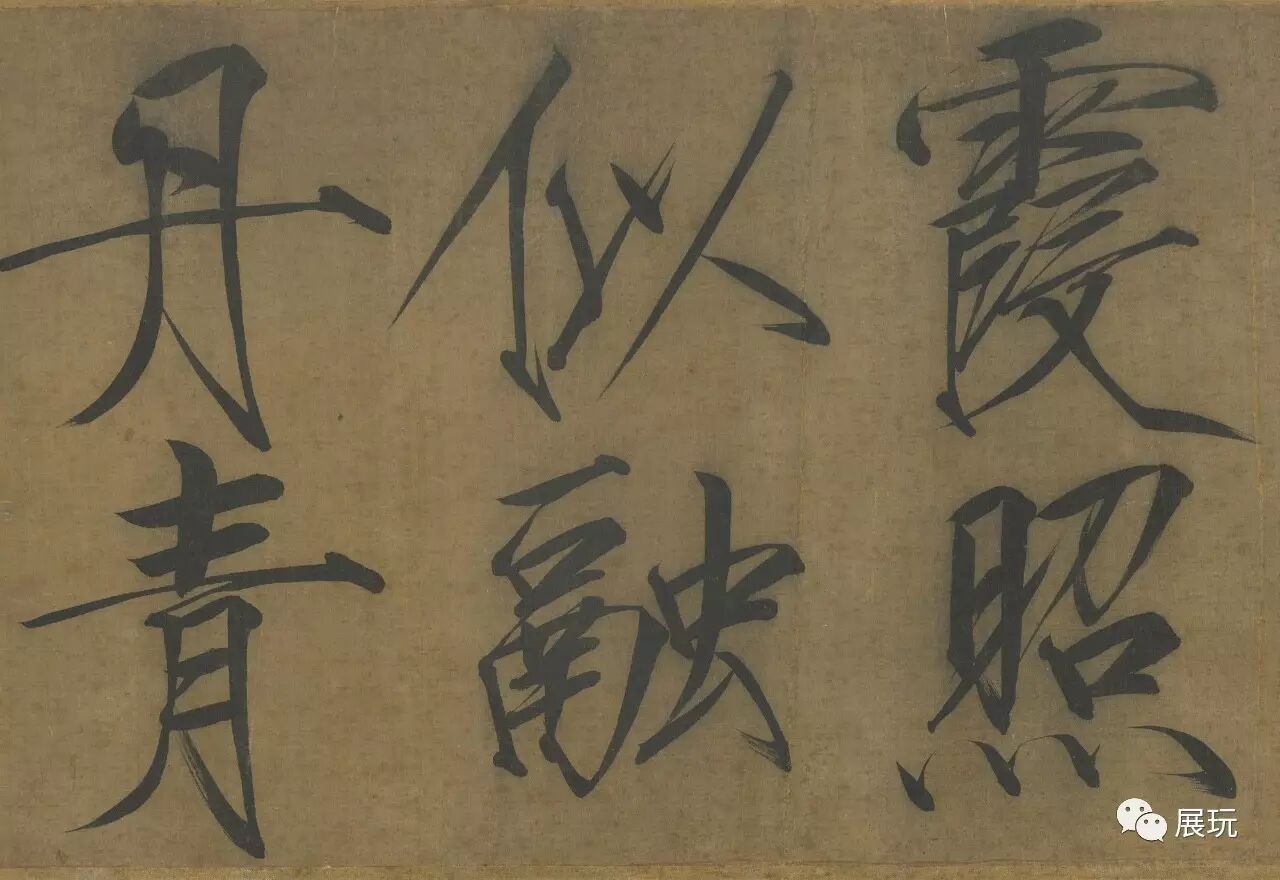 霞照
似融
丹青
展玩